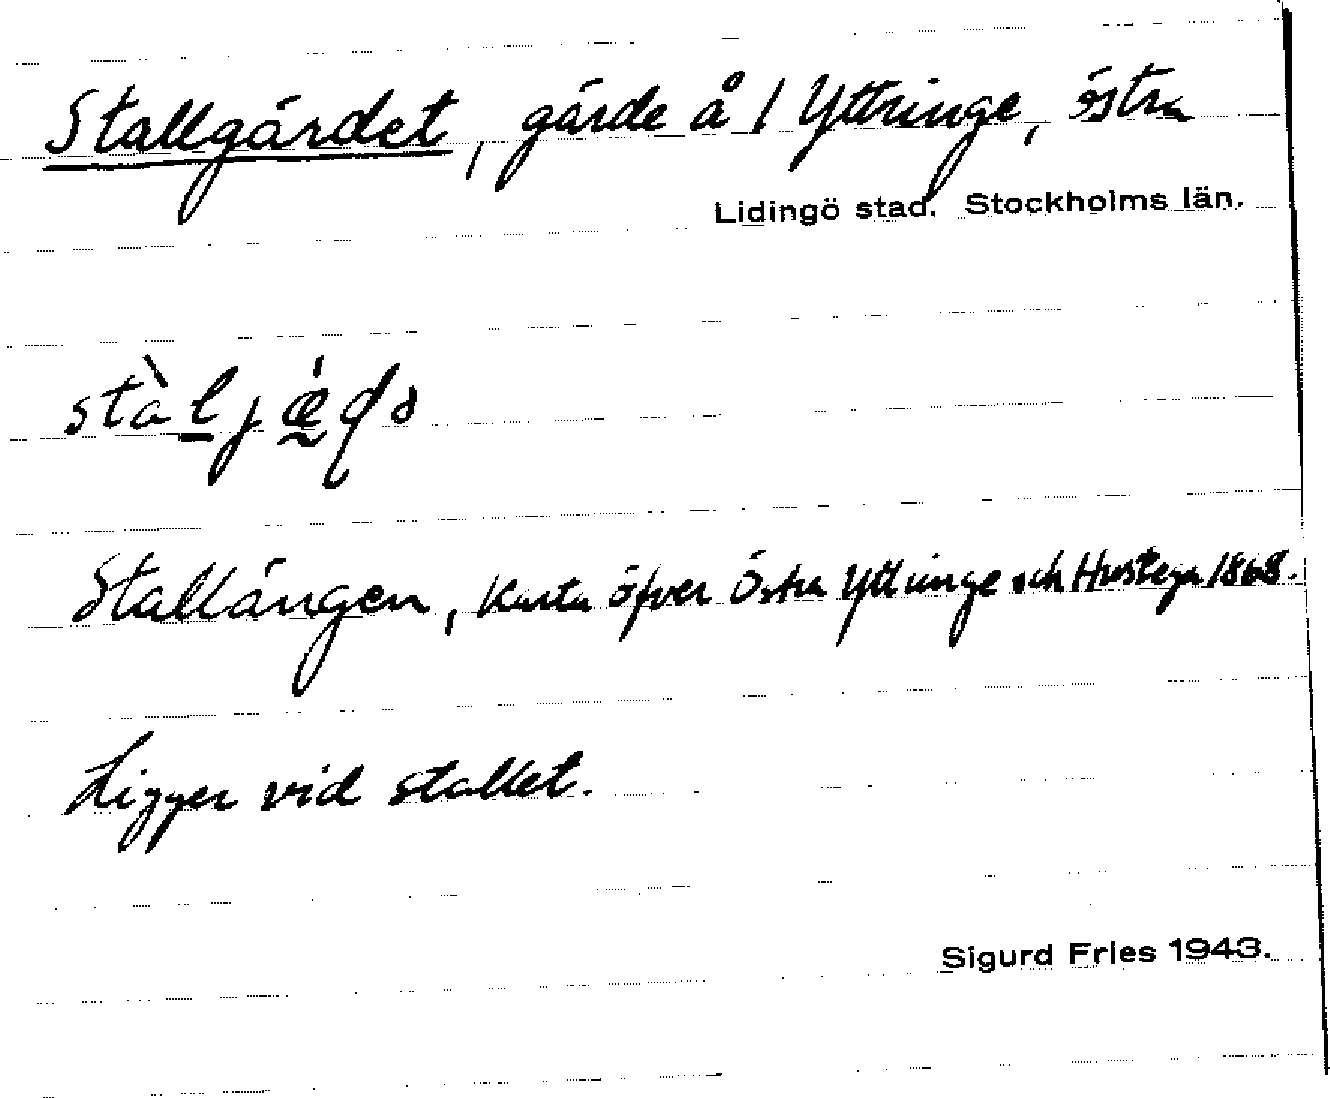 Stallgärdet, gärde å 1 Yttringe, östra
Lidingö stad. Stockholms län.
Stallängen, Karta öfver Östra Yttringe och Hustega 1868.
Ligger vid stallet.
Sigurd Fries 1943.